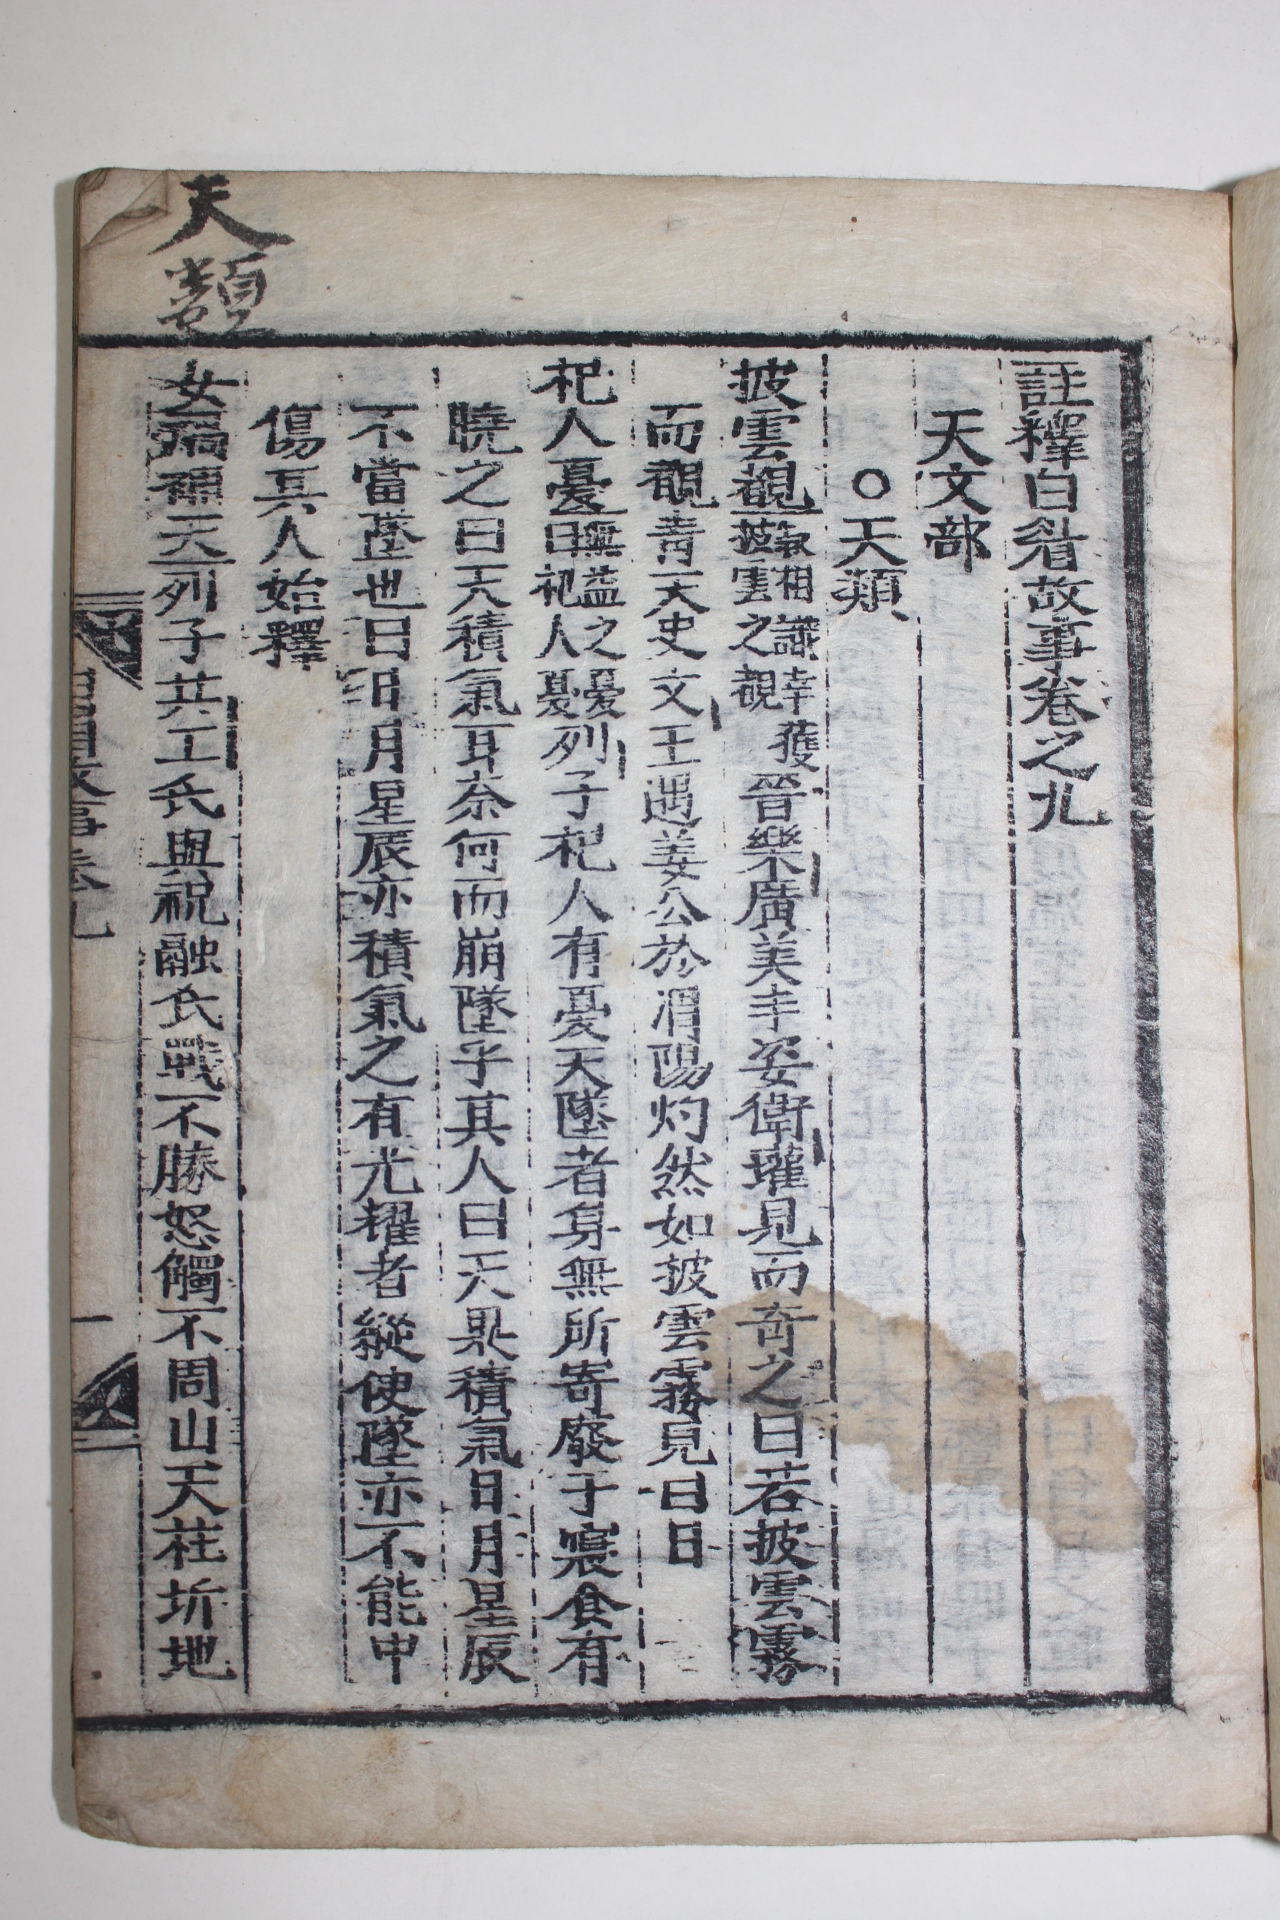 天類
註釋白眉故事卷之九
天文部
○天類
披雲覩氣相識幸獲披雲之覩晉樂廣美丰姿衛瓘見而奇之曰若披雲霧
而覩青天史文王遇姜公於渭陽灼然如披雲霧見白日
杞人憂無益之憂曰杞人憂列子杞人有憂天墜者身無所寄廢于寢食有
曉之曰天積氣耳奈何而崩墜乎其人曰天果積氣日月星辰
不當墜也曰日月星辰亦積氣之有光耀者縱使墜亦不能中
傷其人始釋
女媧補天列子共工氏與祝融氏戰不勝怒觸不周山天柱折地
白眉故事卷九
一